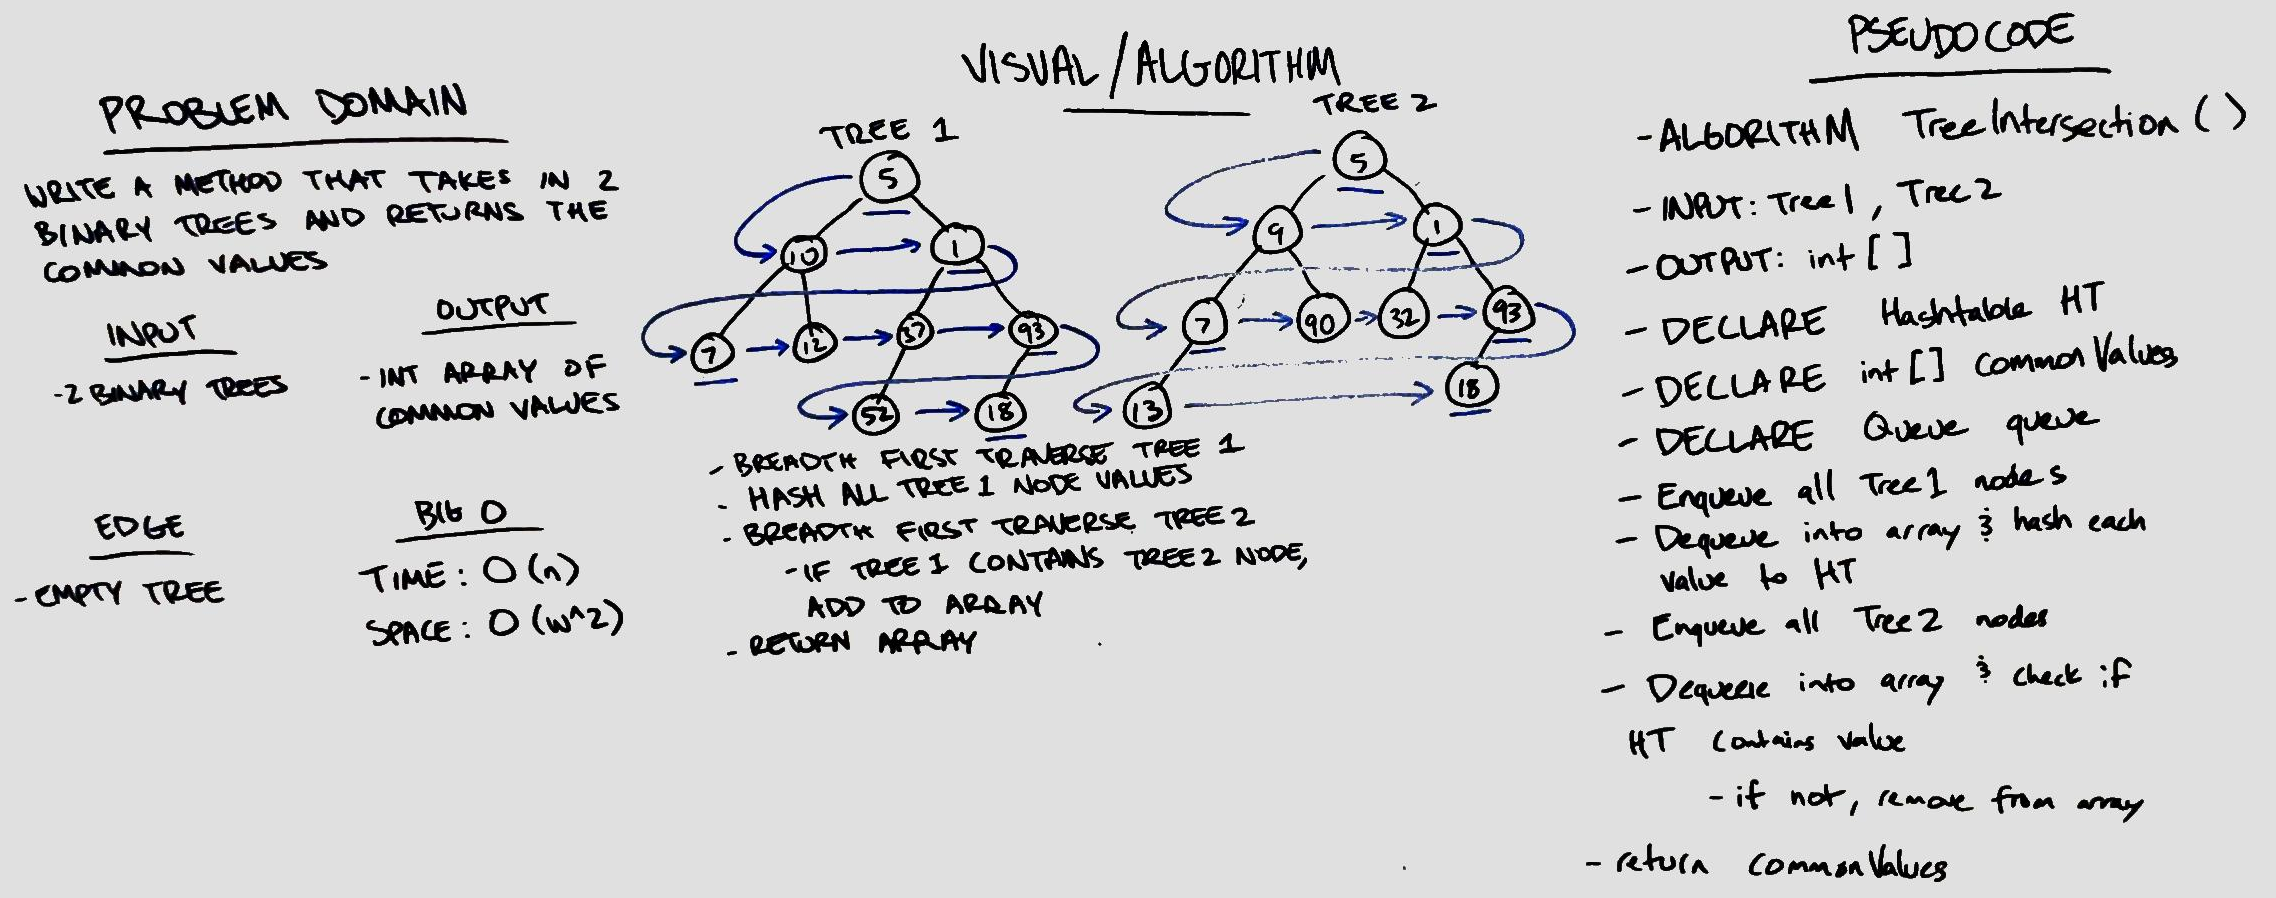 PROBLEM DOMAIN
WRITE A METHOD THAT TAKES IN 2
BINARY TREES AND RETURNS THE
COMMON VALUES
INPUT
-2 BINARY TREES
OUTPUT
- INT ARRAY OF
COMMON VALUES
EDGE
- EMPTY TREE
BIG O
TIME: O(n)
SPACE: O(w^2)
VISUAL/ALGORITHM
TREE 1
5
10
1
7
12
37
93
52
18
TREE 2
5
9
1
7
90
32
93
13
18
- BREADTH FIRST TRAVERSE TREE 1
- HASH ALL TREE 1 NODE VALUES
- BREADTH FIRST TRAVERSE TREE 2
- IF TREE 1 CONTAINS TREE 2 NODE,
ADD TO ARRAY
- RETURN ARRAY
PSEUDOCODE
- ALGORITHM TreeIntersection()
- INPUT: Tree1, Tree2
- OUTPUT: int[]
- DECLARE Hashtable HT
- DECLARE int[] CommonValues
- DECLARE Queue queue
- Enqueue all Tree1 nodes
- Dequeue into array & hash each
value to HT
- Enqueue all Tree2 nodes
- Dequeue into array & check if
HT contains value
- if not, remove from array
- return CommonValues